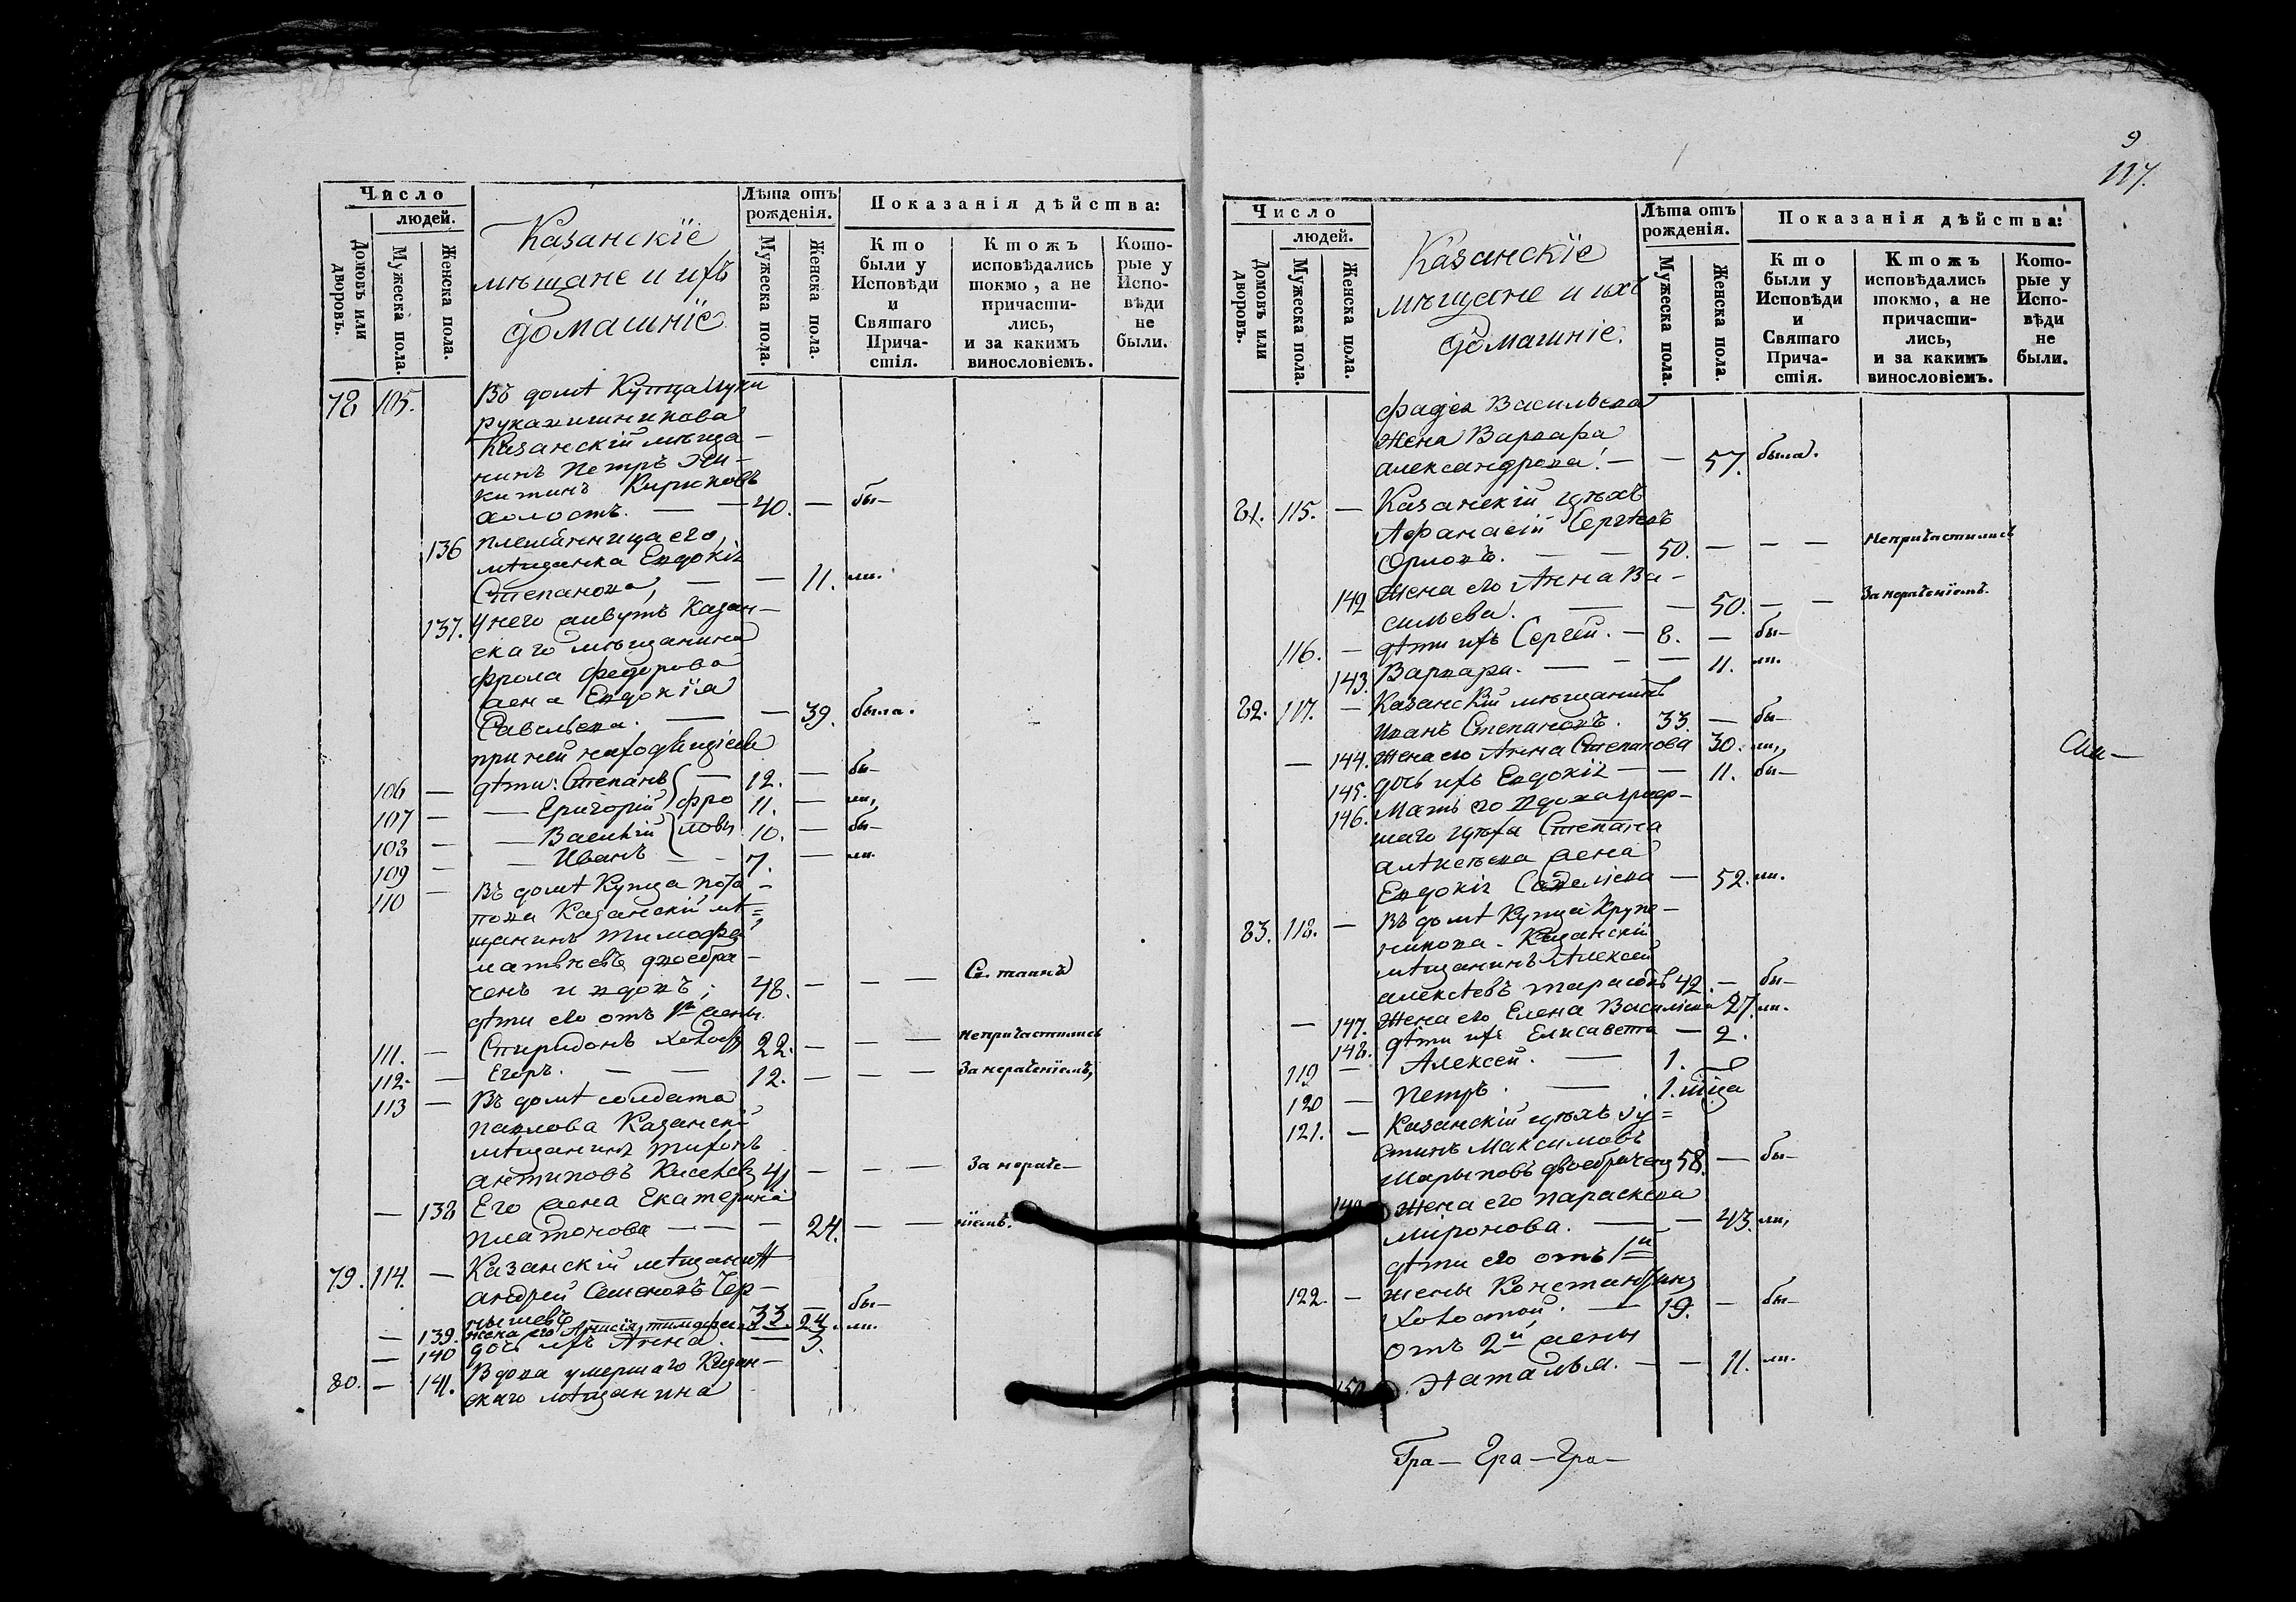 Число
людей.
Домовъ или дворовъ.
Мужеска пола.
Женска пола.
Казанскіе
мѣщане и ихъ
домашніе
Лѣта отъ рожденія.
Мужеска пола.
Женска пола.
Показанія дѣйства:
Кто были у Исповѣди и Святаго Причастія.
Ктожъ исповѣдались токмо, а не причастились, и за какимъ винословіемъ.
Которые у Исповѣди не были.
78 105. Въ домѣ Купца
рукавишникова
Казанскій мѣща-
нинъ Петръ Ни-
китинъ Кирюковъ
холостъ. — — 40. — бы-
136 племянница его,
мѣщанка Евдокія
Степанова, — — 11. ли.
137. У него живутъ Казан-
скаго мѣщанина
фрола федорова
жена Евдокія
Савельева. — — 39. была.
при ней находящіеся
106 — дѣти: Степанъ — 12. — бы-
107 — — Григорій фро 11. — ли,
108 — — Василій ловы 10. — бы-
109 — — Иванъ — — 7. — ли.
110 — Въ домѣ Купца пота-
пова Казанскій мѣ=
щанинъ тимофей
матвѣевъ двоебра-
ченъ и вдовъ; 48. — — —
дѣти его отъ 1й жены.
111. — Спиридонъ холостъ 22. — — — непричастились
112. — Егоръ. — — 12. — — — За нераченіемъ,
113 — Въ домѣ солдата
павлова Казанскій
мѣщанинъ тихонъ
антиповъ Киселевъ 41 — — — За нераче-
— 138 Его жена Екатерина
платонова — — — 24. — — ніемъ.
79. 114. — Казанскій мѣщанинъ
андрей Семеновъ Чер-
нышевъ 33. — бы-
— 139. жена его тимофеева — 24. ли.
— 140 дочь ихъ Анна. — 3.
80. — 141. Вдова умершаго Казан-
скаго мѣщанина
9
117.
Число
людей.
Домовъ или дворовъ.
Мужеска пола.
Женска пола.
Казанскіе
мѣщане и ихъ
домашніе.
Лѣта отъ рожденія.
Мужеска пола.
Женска пола.
Показанія дѣйства:
Кто были у Исповѣди и Святаго Причастія.
Ктожъ исповѣдались токмо, а не причастились, и за какимъ винословіемъ.
Которые у Исповѣди не были.
фадея Васильева
жена Варвара
александрова. — — 57. была.
81. 115. — Казанскій цѣхъ
Афанасій Сергѣевъ
Орловъ. — — 50. — — — Непричастились
142 Жена его Анна Ва-
сильева. — — 50. — — За нераченіемъ.
116. — дѣти ихъ Сергей. — 8. — бы-
143. Варвара. — — — 11. ли.
82. 117. — Казанскій мѣщанинъ
Иванъ Степановъ. 33. — бы-
— 144. Жена его Анна Степанова 30. ли,
145. дочь ихъ Евдокія — — 11. бы-
146. Мать его вдова умер-
шаго цѣха Степана
алѣксѣева жена
Евдокія Савеліева — 52. ли.
83. 118. — Въ домѣ Купца Крупе-
никова. Казанскій
мѣщанинъ Алексей
алексѣевъ тарасовъ 42. — бы-
— 147. Жена его Елена Василіева 27. ли.
148. дѣти ихъ Елисавета — 2.
119 — Алексей. — 1. —
120 — Петръ. — 1.
121. — Казанскій цѣхъ Іу=
стинъ Максимовъ
Шарыповъ двоебраченъ 58. — бы-
149 Жена его параскева
миронова. — — 43. ли,
дѣти его отъ 1й
122. — жены Константинъ
холостой. — 19. — бы-
отъ 2й жены
150 Наталья. — — 11. ли.
Гра- Гра- Гра-